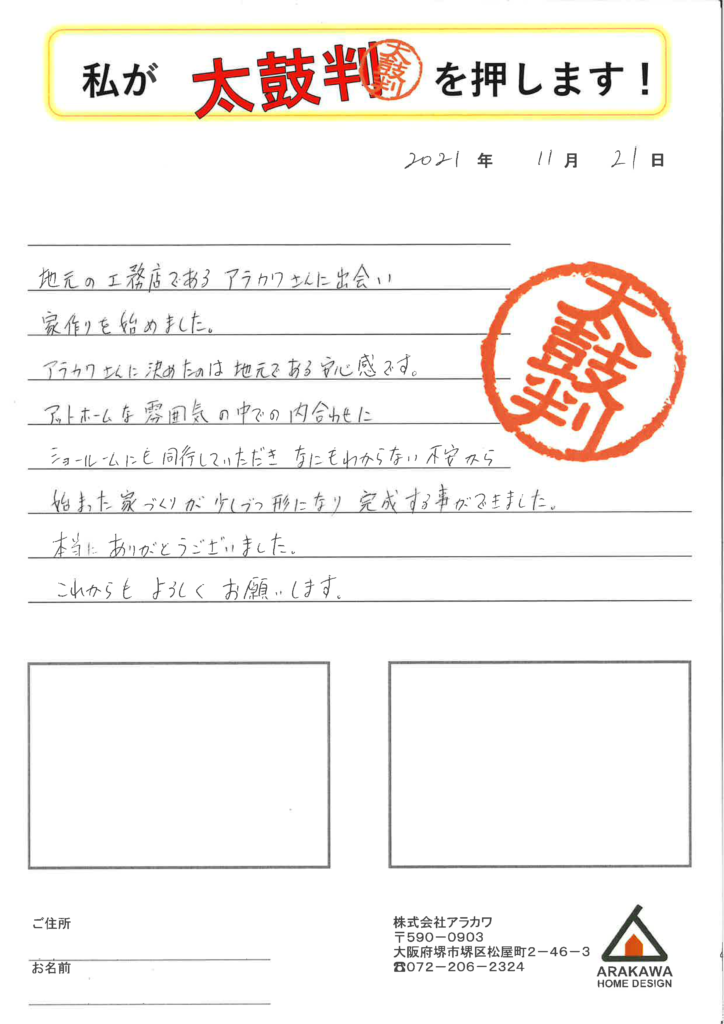 私が 太鼓判 太鼓判 を押します！
2021 年 11 月 21 日
地元の工務店である アラカワさんに出会い
家作りを始めました。
アラカワさんに決めたのは地元である安心感です。
アットホームな雰囲気の中での内合わせに
ショールームにも同行していただき なにもわからない不安から
始まった家づくりが少しづつ形になり 完成する事ができました。
本当に ありがとうございました。
これからも よろしく お願いします。
太鼓判
ご住所
お名前
株式会社アラカワ
〒590－0903
大阪府堺市堺区松屋町2－46－3
☎072－206－2324
ARAKAWA
HOME DESIGN